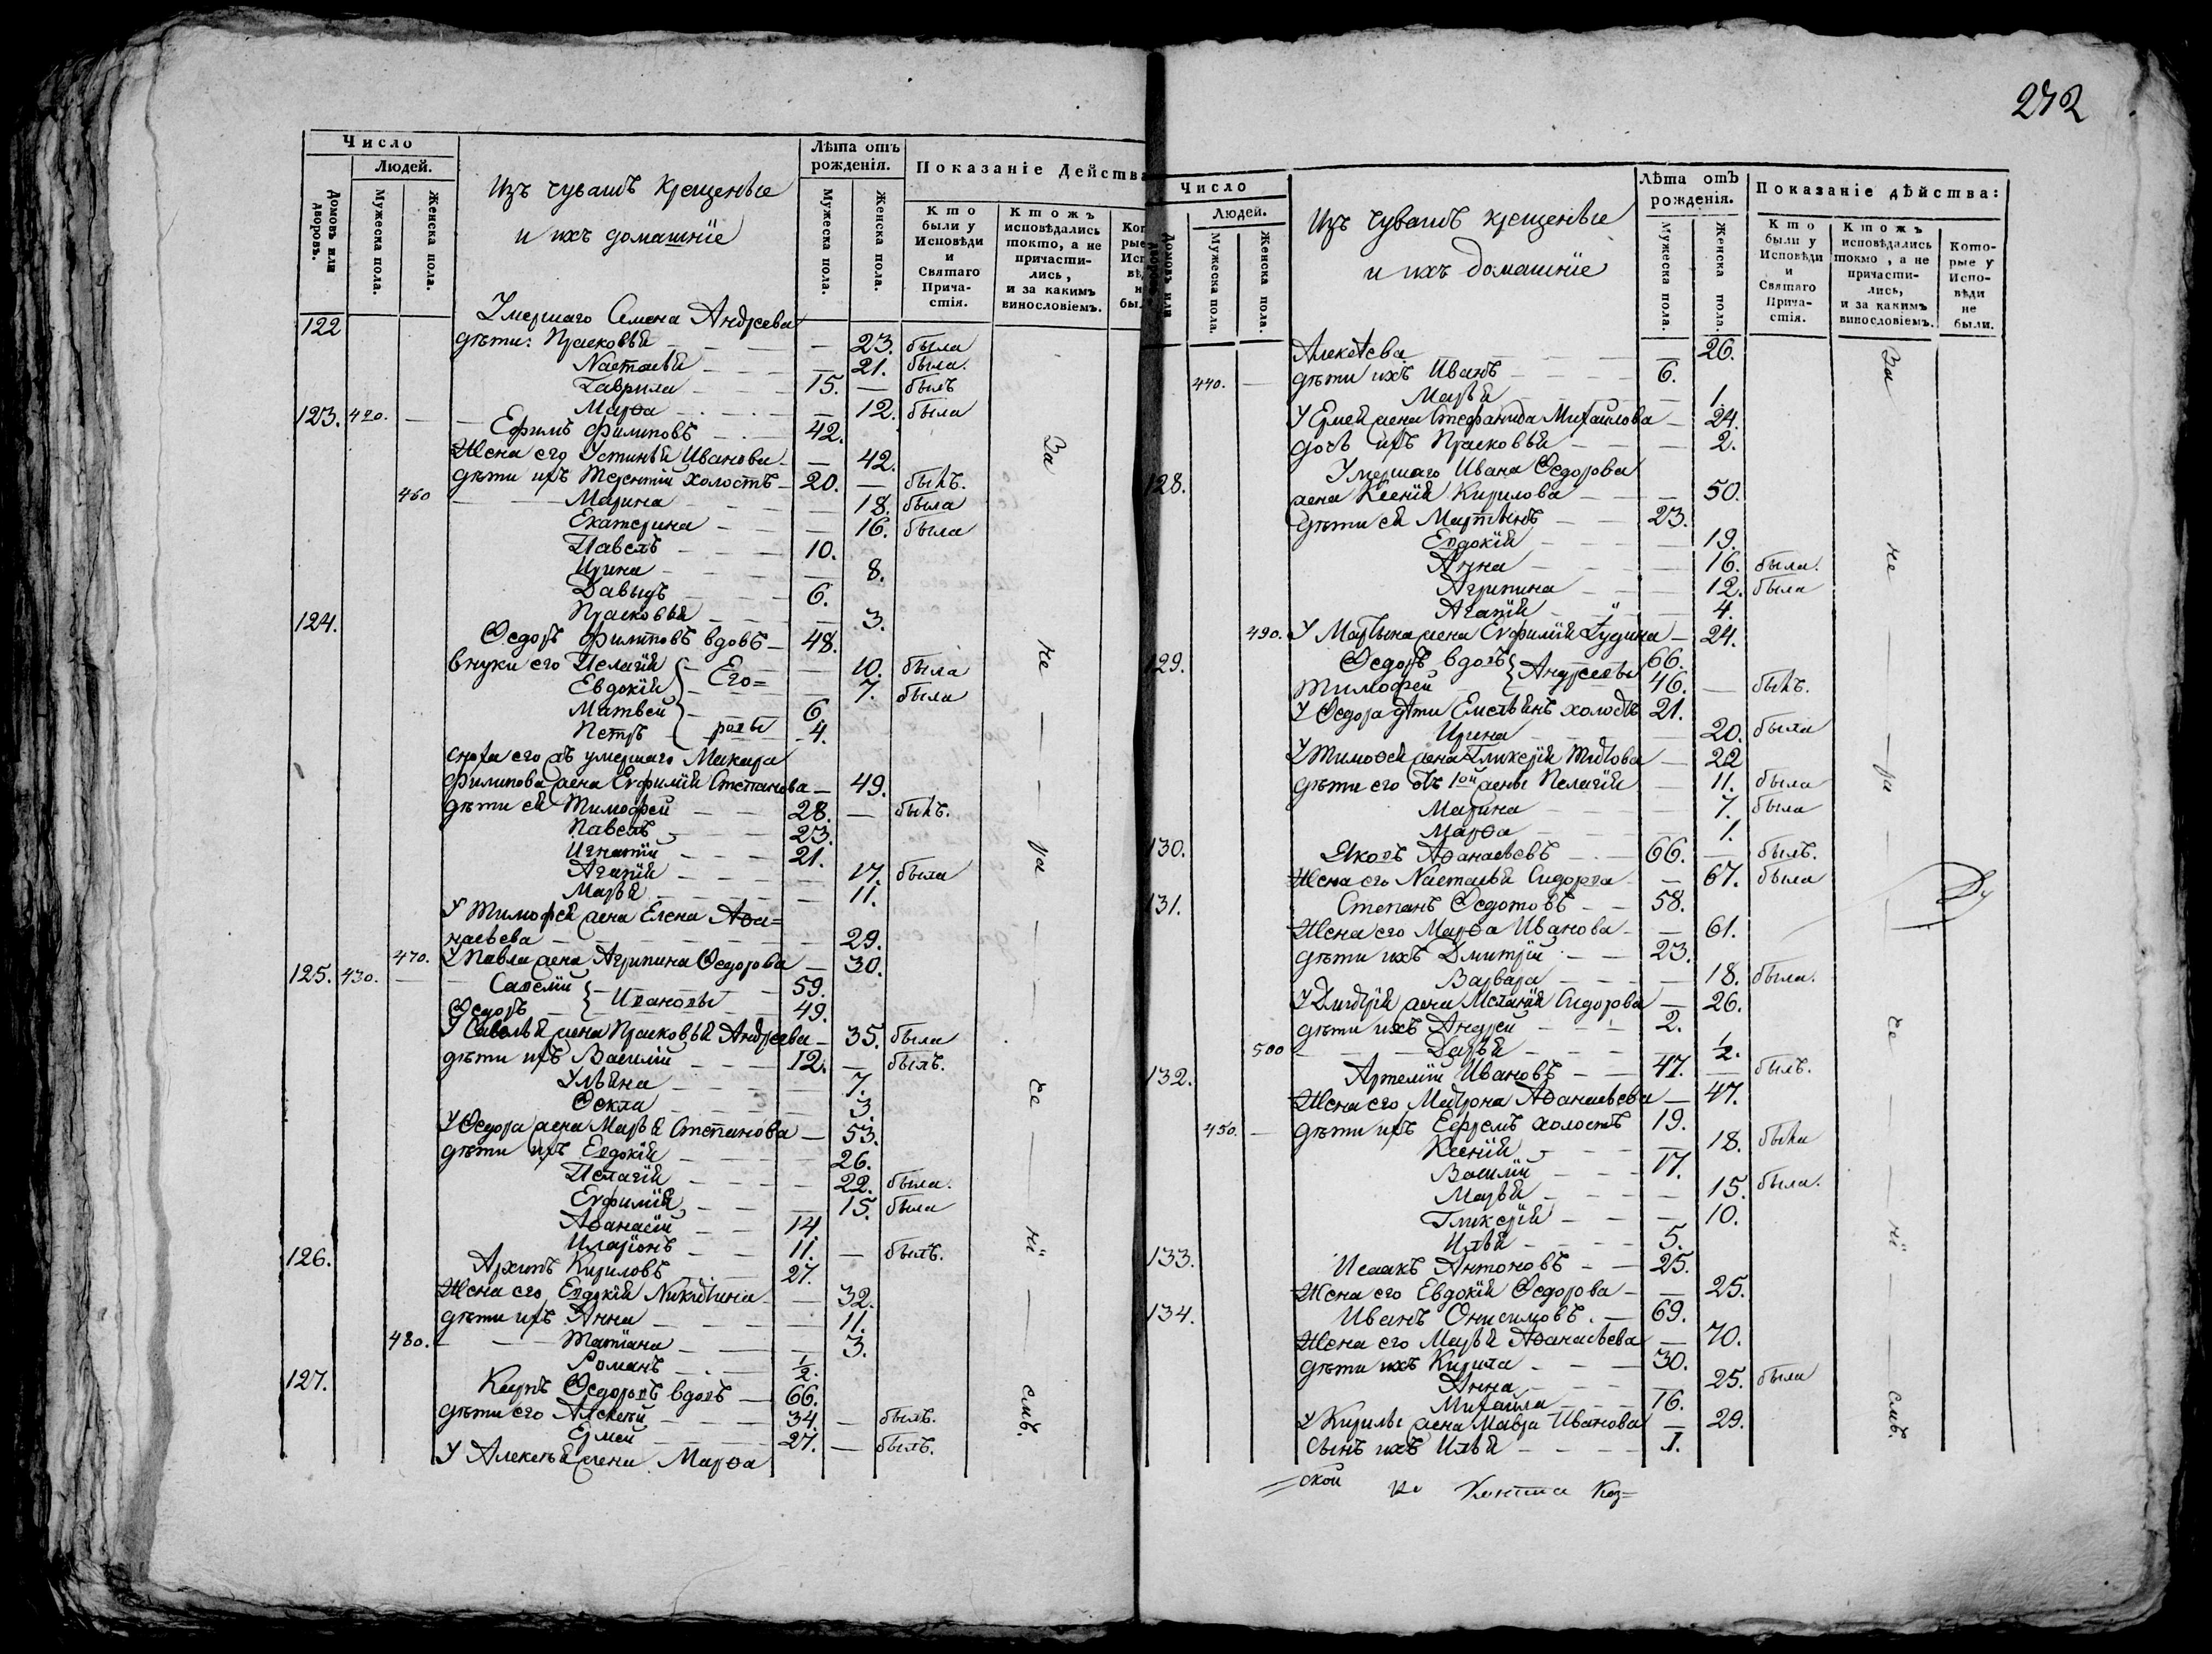 Число
Людей.
Домовъ или дворовъ.
Мужеска пола.
Женска пола.
Изъ чувашъ крещеные
и ихъ домашнїе
Лѣта отъ рожденія.
Мужеска пола.
Женска пола.
Показаніе Действа
Кто были у Исповѣди и Святаго Причастія.
Ктожъ исповѣдались токто, а не причастились, и за какимъ винословіемъ.
122 Умершаго Семена Андреева
дѣти: Прасковья — 23. была
Настасья — 21. была.
Гаврила 15. — былъ
Марѳа — 12. была
123. 420. Ефимъ Филиповъ 42.
Жена его Устинья Иванова — 42.
дѣти ихъ Терентїй холостъ 20. — былъ.
460 Марина — 18. была
Екатерина — 16. была
Павелъ 10.
Ирина — 8.
Давыдъ 6.
Прасковья — 3.
124. Ѳедоръ Филиповъ вдовъ 48.
внуки его Пелагїя — 10. была
Евдокїя — Его= 7. была
Матвей 6
Петръ — ровы 4.
сноха его въ умершаго Макара
Филипова жена Евфимїя Степанова — 49.
дѣти ея Тимофей 28. — былъ.
Павелъ 23.
Игнатїй 21.
Агапїя — 17. была
Марья — 11.
У Тимофея жена Елена Аѳа=
насьева — 29.
470. У Павла жена Агрипина Ѳедорова — 30.
125. 430. Савелїй — Ивановы 59.
Ѳедоръ 49.
У Савелья жена Прасковья Андреева — 35. была
дѣти ихъ Василїй 12. — былъ.
Ульяна 7.
Ѳекла 3.
У Ѳедора жена Марья Степанова — 53.
дѣти ихъ Евдокїя — 26.
Пелагїя — 22. была.
Евфимїя — 15. была
Аѳанасїй 14.
Иларїонъ 11. — былъ.
126. Архипъ Кириловъ 27.
Жена его Евдокїя Никитина — 32.
дѣти ихъ Анна — 11.
480. Татїана — 3.
Романъ 1/2.
127. Карпъ Ѳедоровъ вдовъ 66.
дѣти его Алексѣй 34. — былъ.
Ермей 27. — былъ.
У Алексѣя жена Марѳа
За не ра че нї емъ.
272
Число
Людей.
Домовъ или дворовъ.
Мужеска пола.
Женска пола.
Изъ чувашъ крещеные
и ихъ домашнїе
Лѣта отъ рожденія.
Мужеска пола.
Женска пола.
Показаніе дѣйства:
Кто были у Исповѣди и Святаго Причастія.
Ктожъ исповѣдались токмо, а не причастились, и за какимъ винословіемъ.
Которые у Исповѣди не были.
Алексѣева — 26.
440. дѣти ихъ Иванъ 6.
Марья — 1.
У Ермея жена Стефанида Михайлова — 24.
дочь ихъ Прасковья — 2.
128. Умершаго Ивана Ѳедорова
жена Ксенїя Кирилова — 50.
дѣти ея Мартынъ 23.
Евдокїя — 19.
Анна — 16. была.
Агрипина — 12. была
Агапїя — 4.
490. У Мартына жена Евфимїя — 24.
129. Ѳедоръ вдовъ Андреевы 66.
Тимоѳей 46. — былъ.
У Ѳедора дѣти Емельянъ холостъ 21.
Ирина — 20. была
У Тимоѳея жена Гликерїя Титова — 22
дѣти его отъ 1ой жены Пелагїя — 11. была
Марина — 7. была
Марѳа — 1.
130. Яковъ Аѳанасьевъ 66. — былъ.
Жена его Настасья Сидорова — 67. была
131. Степанъ Ѳедотовъ 58.
Жена его Марѳа Иванова — 61.
дѣти ихъ Дмитрїй 23.
Варвара — 18. была.
У Дмитрїя жена Меланїя Сидорова — 26.
дѣти ихъ Андрей 2.
500 Дарья — 1/2.
132. Артемїй Ивановъ 47. — былъ.
Жена его Матрона Аѳанасьева — 47.
450. дѣти ихъ Ефремъ холостъ 19.
Ксенїя — 18. была
Василїй 17.
Марья — 15. была.
Гликерїя — 10.
Илья 5.
133. Исаакъ Антоновъ 25.
Жена его Евдокїя Ѳедорова — 25.
134. Иванъ Онисимовъ 69.
Жена его Марья Аѳанасьева — 70.
дѣти ихъ Кирила 30.
Анна — 25. была
Михаила 16.
У Кирилы жена Мавра Иванова — 29.
Сынъ ихъ Илья 1.
За не ра че нї емъ.
ской